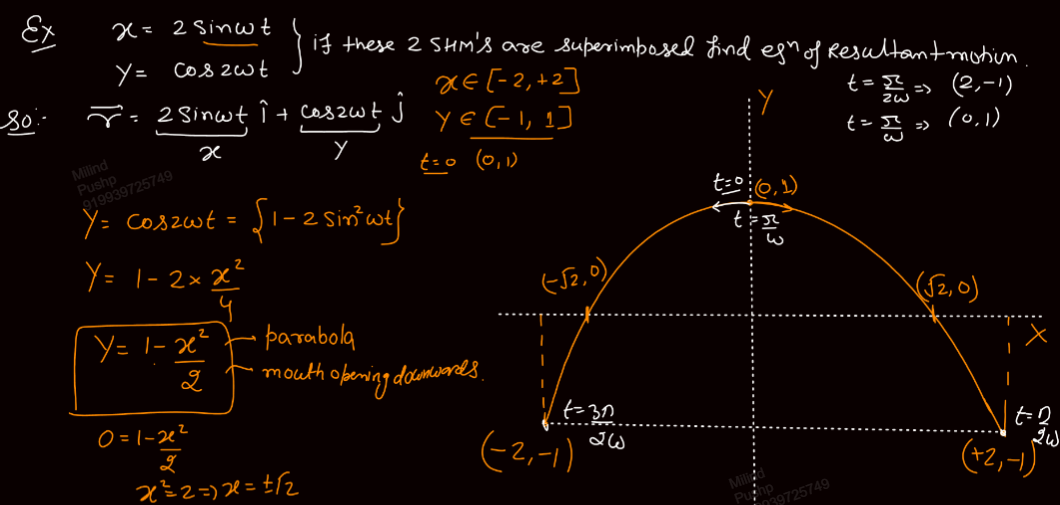 Ex x = 2 sinωt
y = cos2ωt } if these 2 SHM's are superimposed find eqn of Resultant motion.
So:- r⃗ = 2 sinωt î + cos2ωt ĵ
x y
x ∈ [-2, +2]
y ∈ [-1, 1]
t=0 (0,1)
t = π/2ω => (2,-1)
t = π/ω => (0,1)
Milind
Pushp
919939725749
Y = cos2ωt = {1 - 2 sin²ωt}
Y = 1 - 2 × x²/4
Y = 1 - x²/2 → parabola
→ mouth opening downwards.
0 = 1 - x²/2
x² = 2 => x = ±√2
Y
t=0 (0,1)
t = π/ω
(-√2, 0) (√2, 0)
X
t = 3π/2ω t = π/2ω
(-2,-1) (+2,-1)
Milind
Pushp